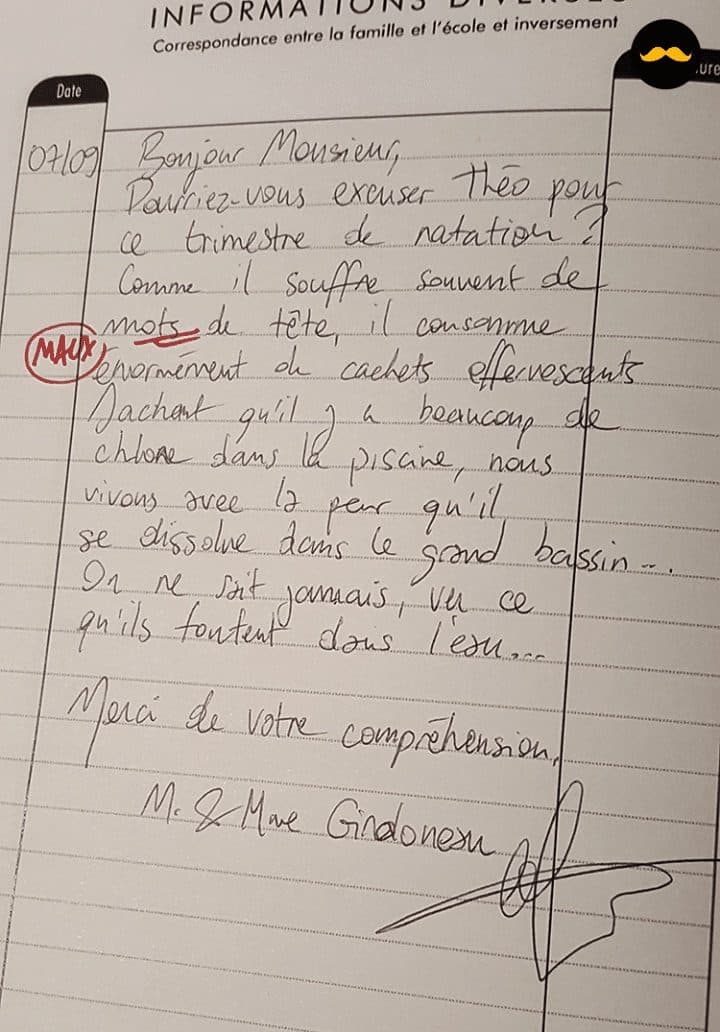 INFORMATIONS DIVERSES
Correspondance entre la famille et l'école et inversement
Date
ure
07/09
Bonjour Monsieur,
Pourriez-vous excuser Théo pour
ce trimestre de natation ?
Comme il souffre souvent de
mots de tête, il consomme
MAUX
énormément de cachets effervescents
Sachant qu'il y a beaucoup de
chlore dans la piscine, nous
vivons avec la peur qu'il
se dissolve dans le grand bassin...
On ne sait jamais, vu ce
qu'ils foutent dans l'eau...
Merci de votre compréhension,
M. & Mme